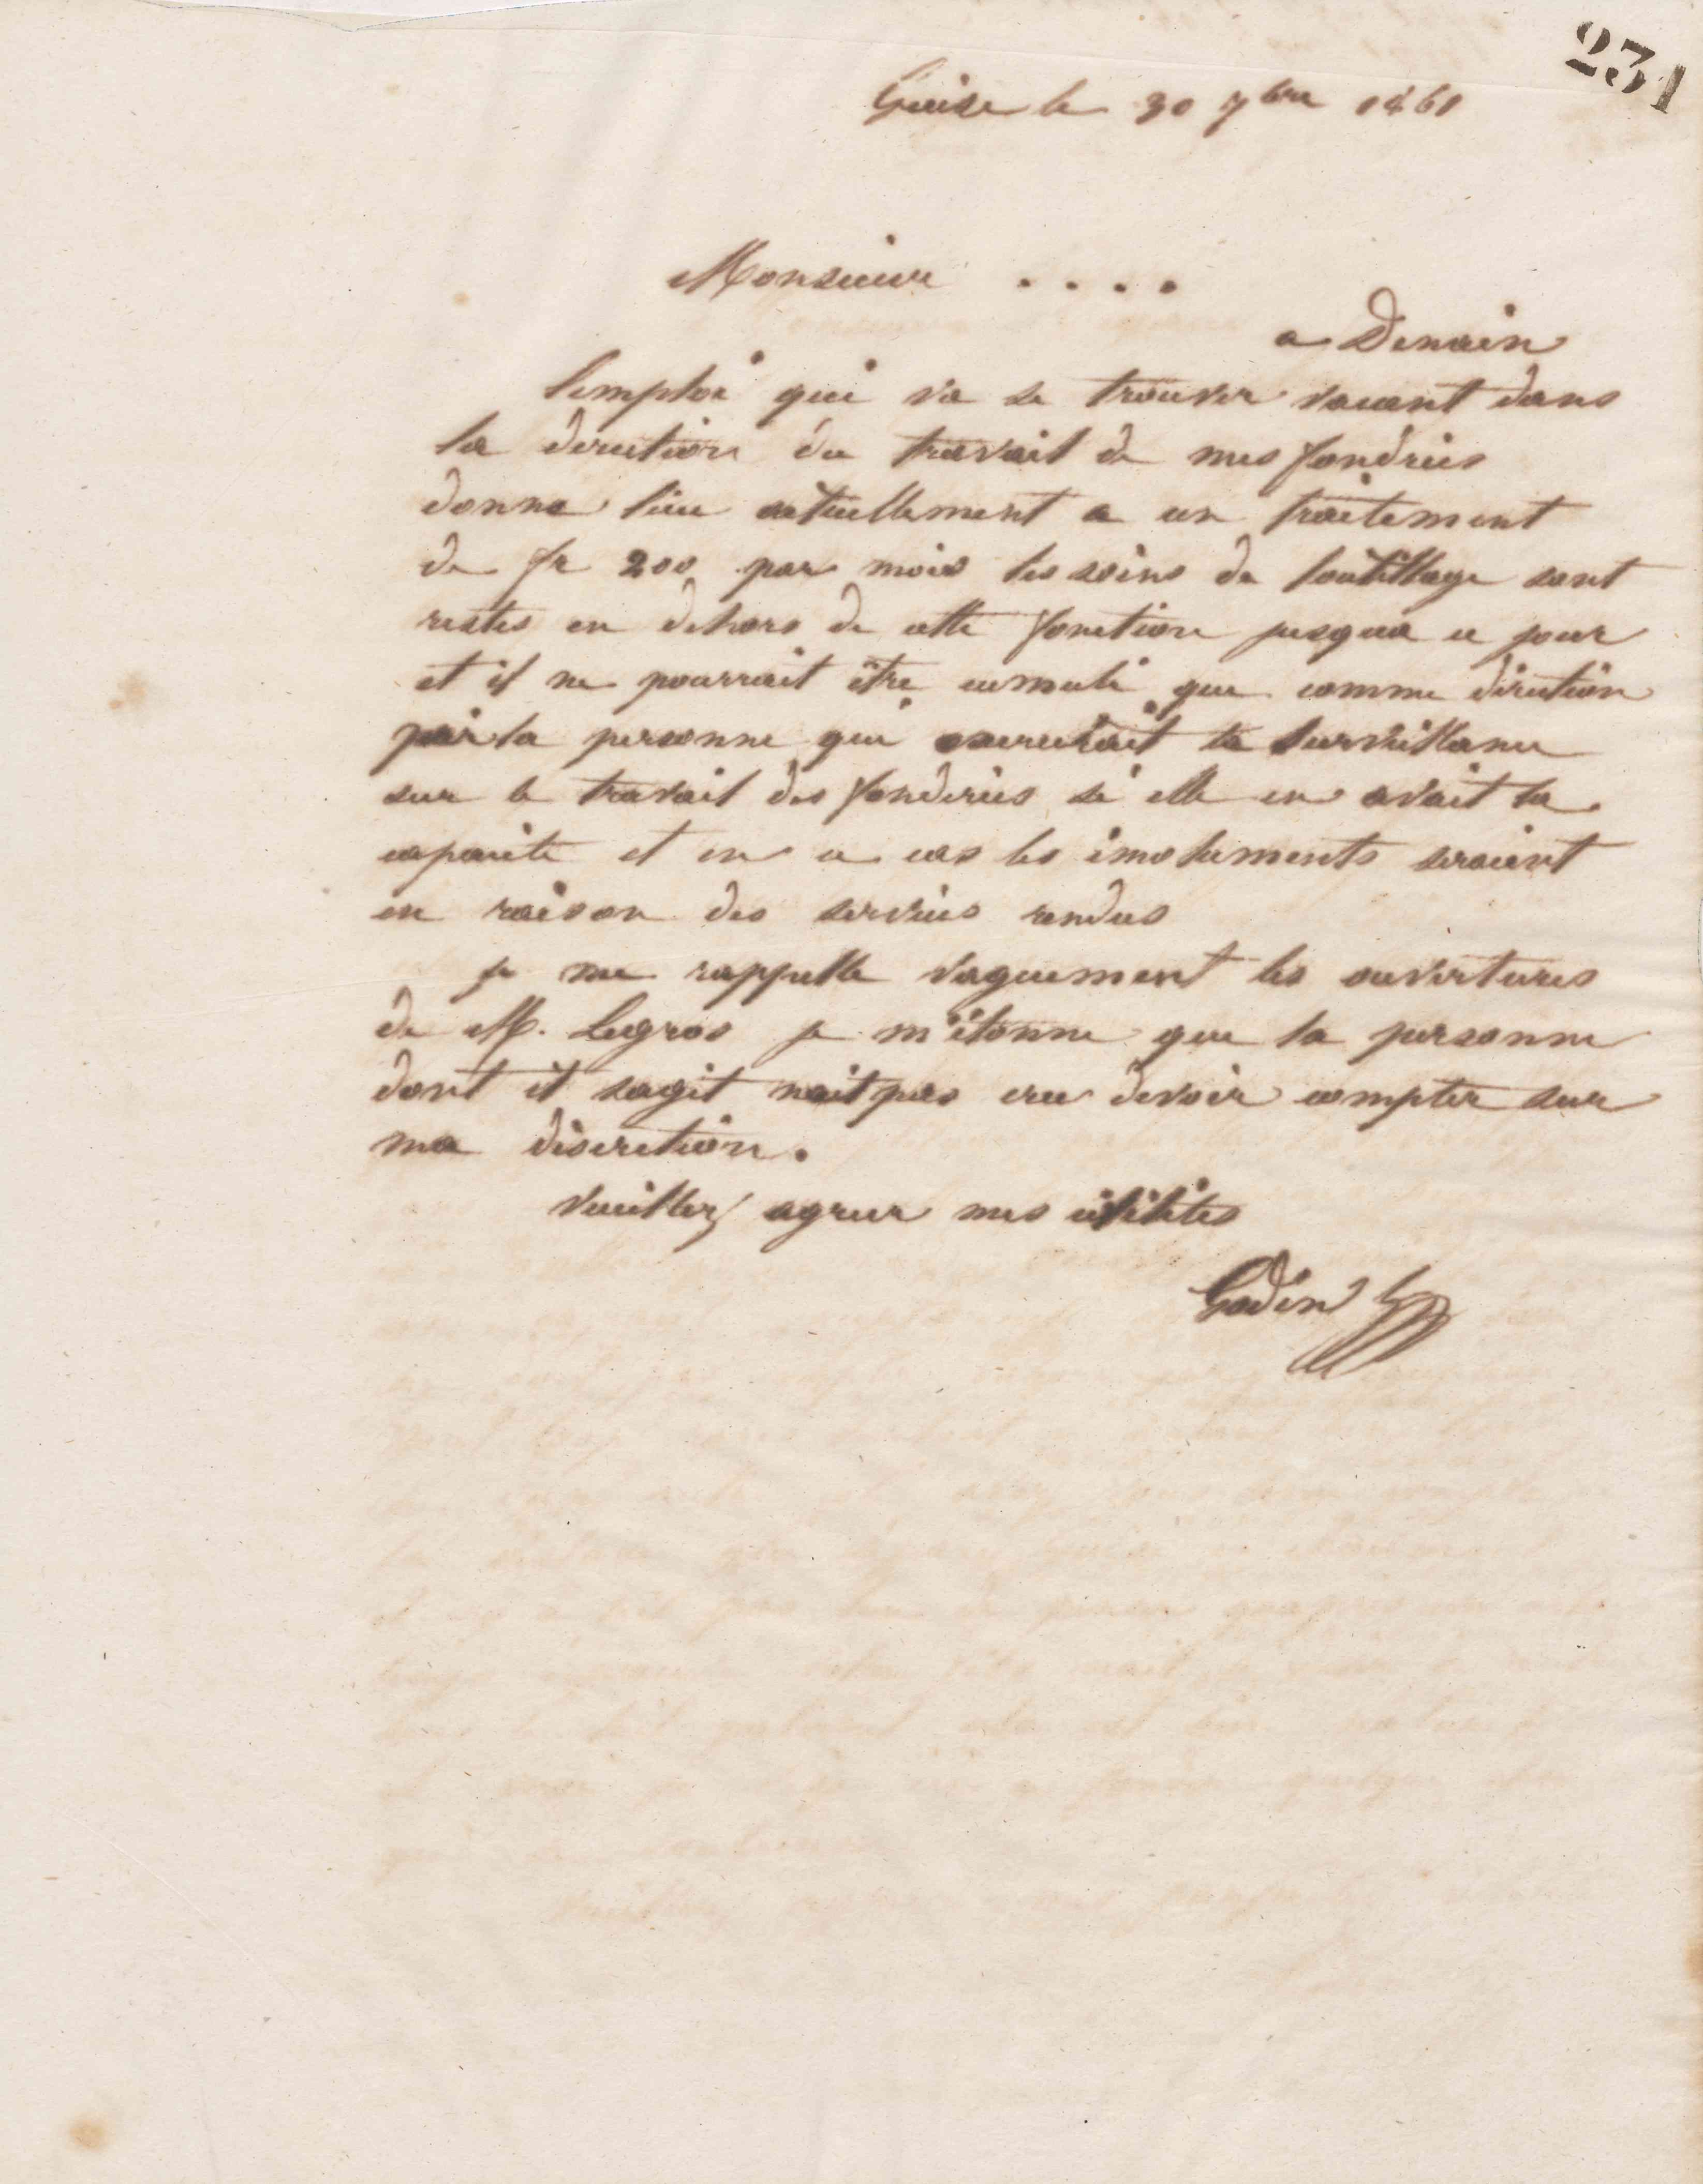 231
Guise le 30 7bre 1861
Monsieur ....
a Denain
lemploi qui va se trouver vacant dans
la direction du travail de mes fondries
donne lieu actuellement a un traitement
de fr 200 par mois les soins de loutillage sont
restes en dehors de cette fonction jusqua ce jour
et il ne pourrait être cumulé que comme direction
par la personne qui exercerait la surveillance
sur le travail des fonderies si elle en avait la
capacité et en ce cas les émoluments seraient
en raison des services rendus
je me rappelle vaguement les ouvertures
de M. Legros je m'étonne que la personne
dont il sagit nait pas cru devoir compter sur
ma discretion.
Veuillez agreer mes civilités
Godin